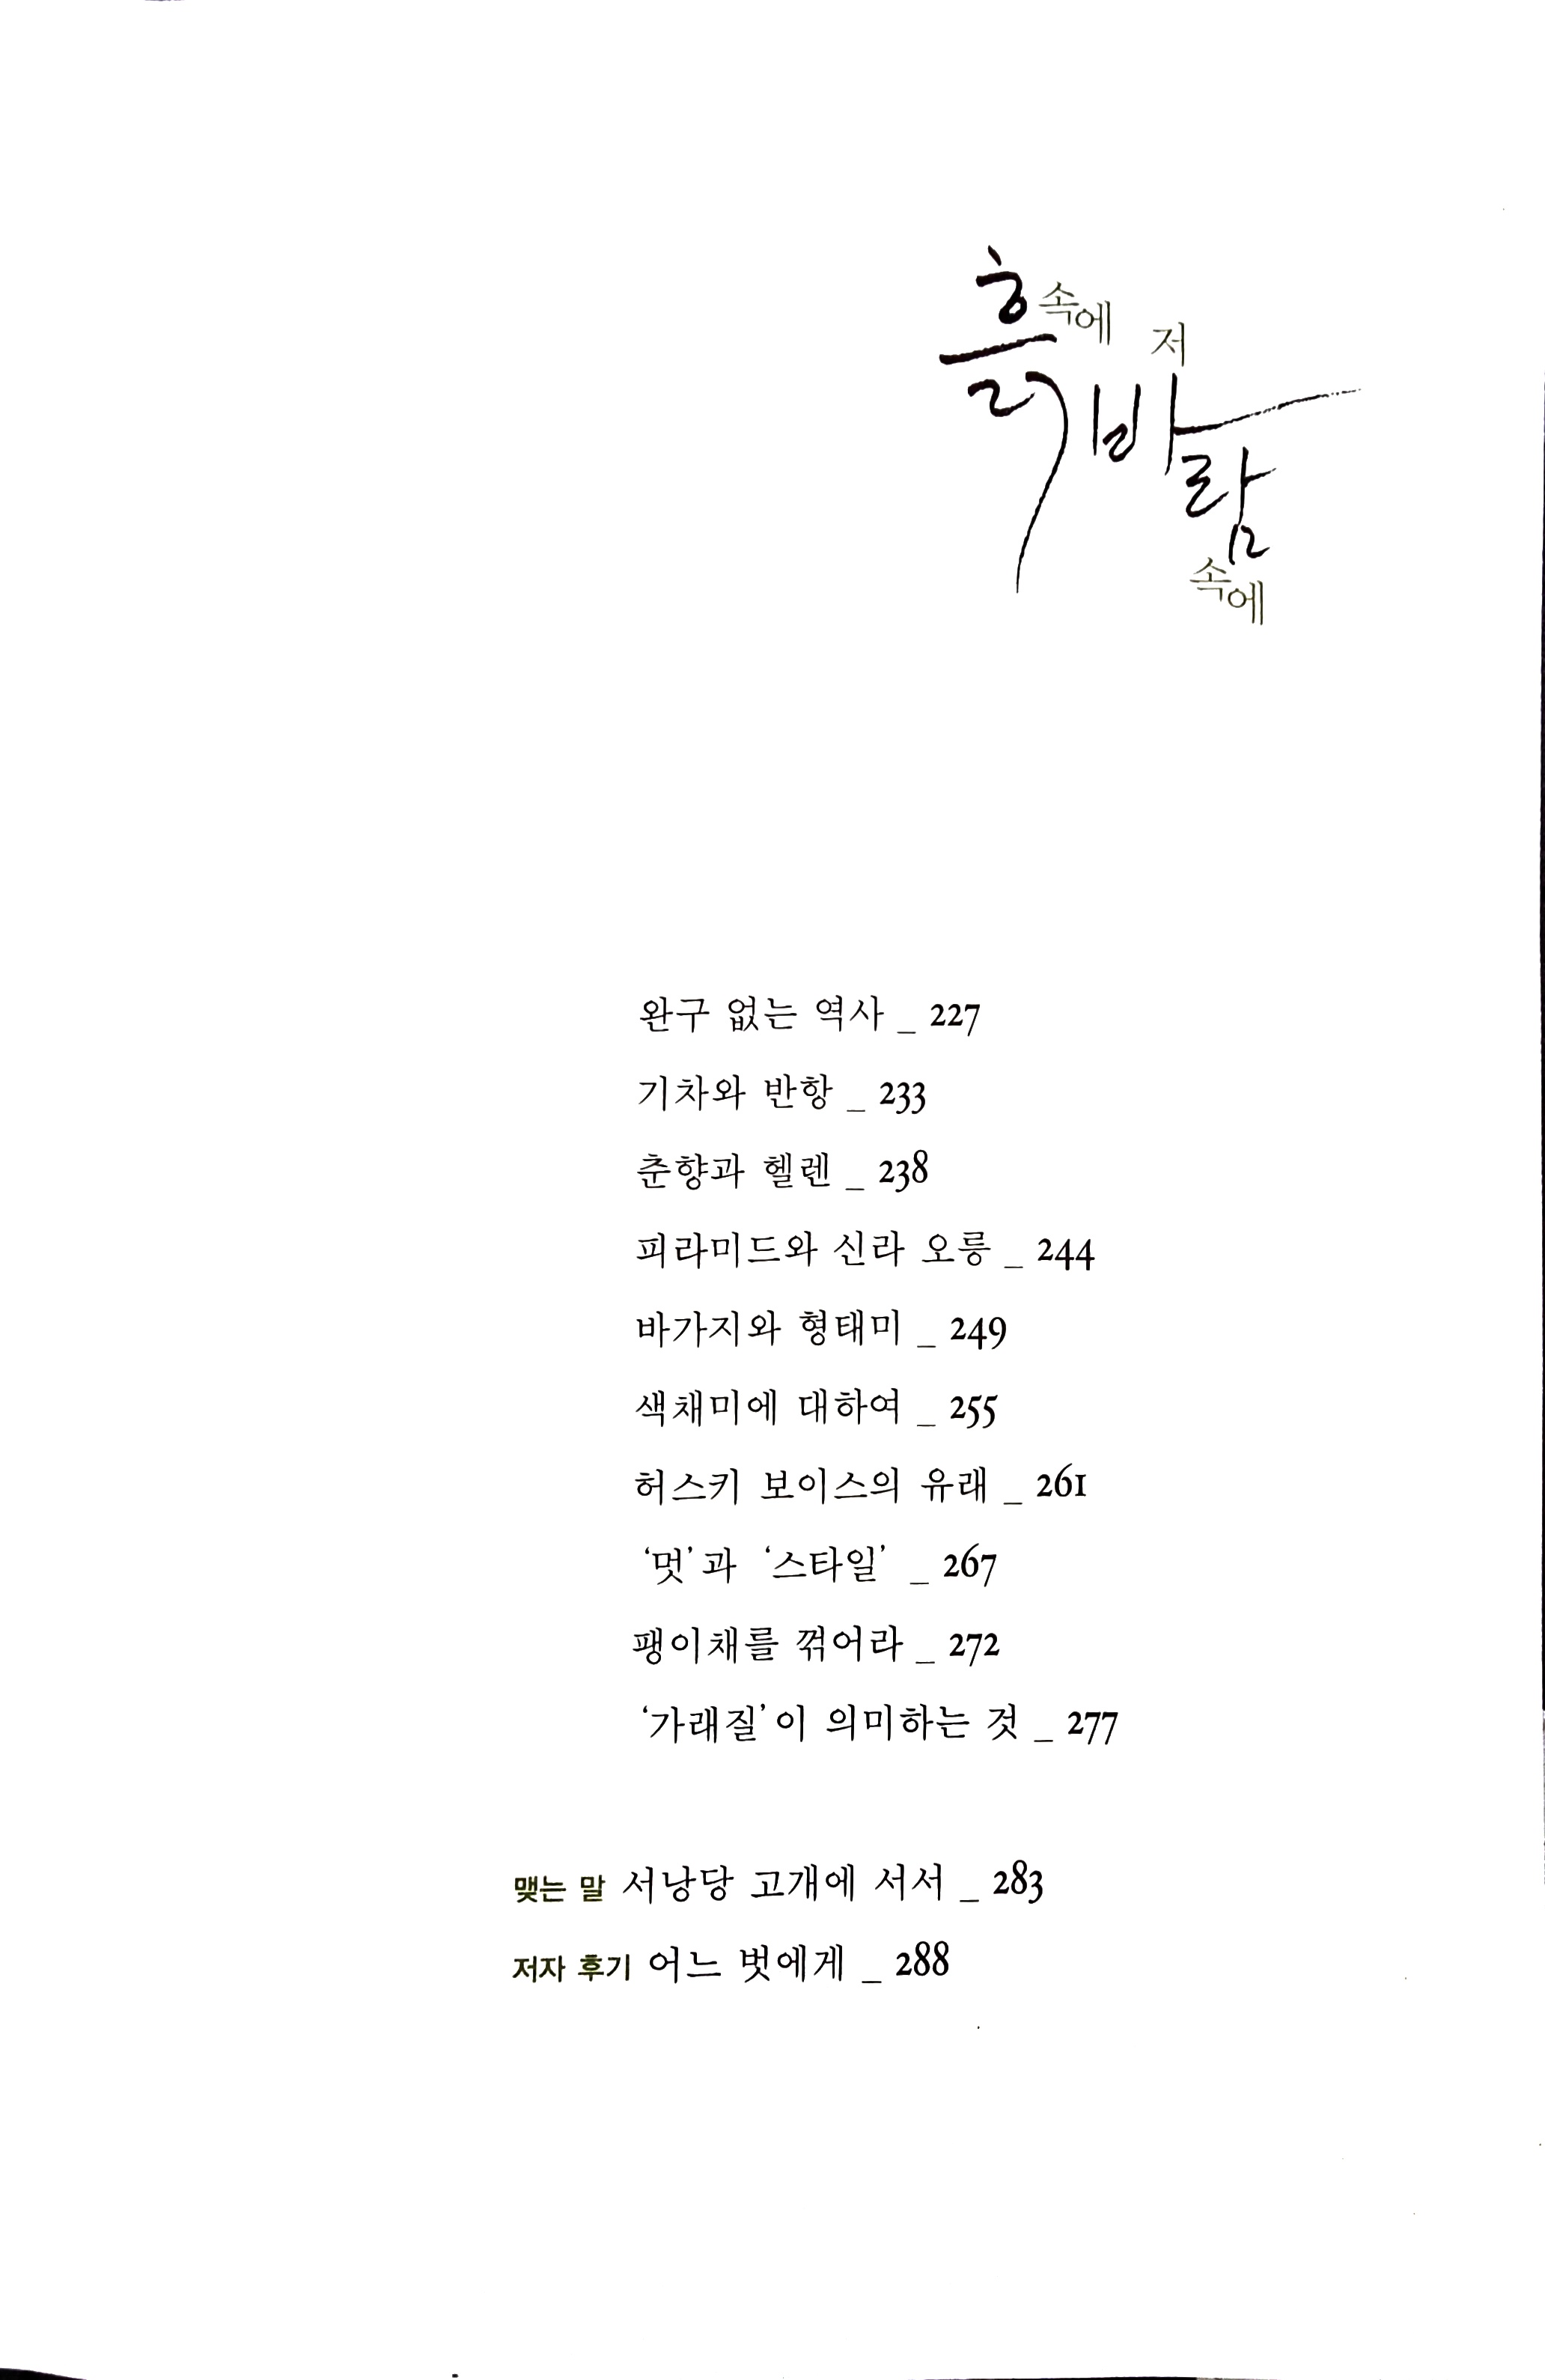 흙 속에 저
바람
속에
완구 없는 역사 _ 227
기차와 반항 _ 233
춘향과 헬렌 _ 238
피라미드와 신라 오릉 _ 244
바가지와 형태미 _ 249
색채미에 대하여 _ 255
허스키 보이스의 유래 _ 261
‘멋’과 ‘스타일’ _ 267
팽이채를 꺾어라 _ 272
‘가래질’이 의미하는 것 _ 277
맺는 말 서낭당 고개에 서서 _ 283
저자 후기 어느 벗에게 _ 288